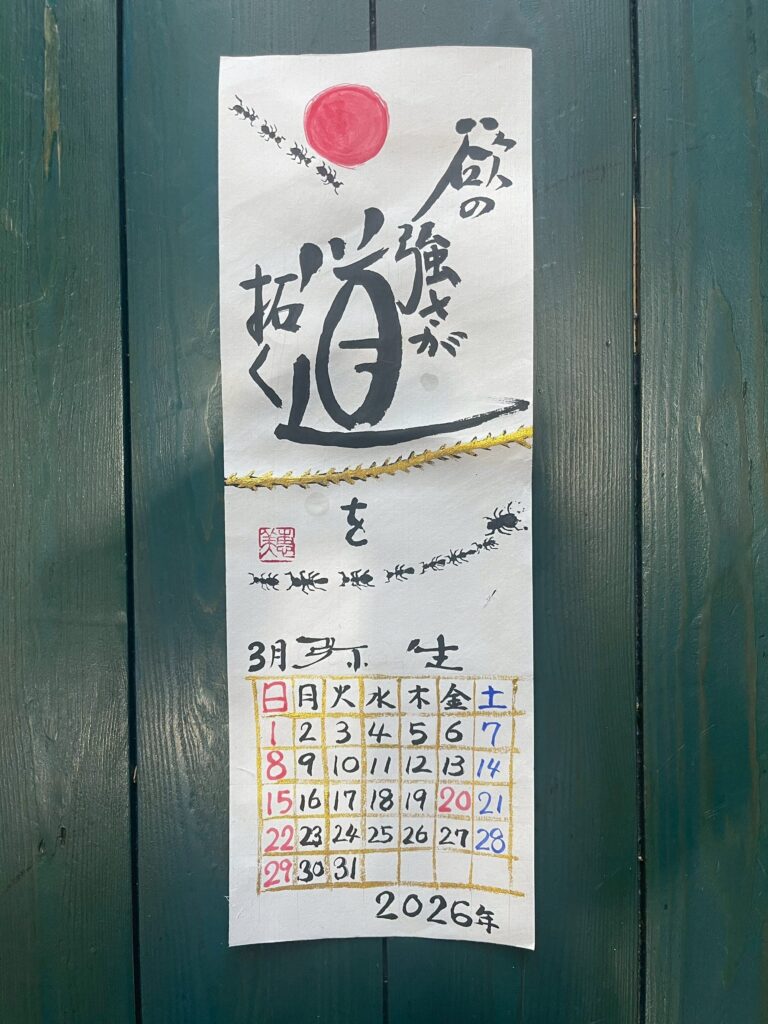 欲の
強さが
道
を
拓く
3月 弥生
日 月 火 水 木 金 土
1 2 3 4 5 6 7
8 9 10 11 12 13 14
15 16 17 18 19 20 21
22 23 24 25 26 27 28
29 30 31
2026年